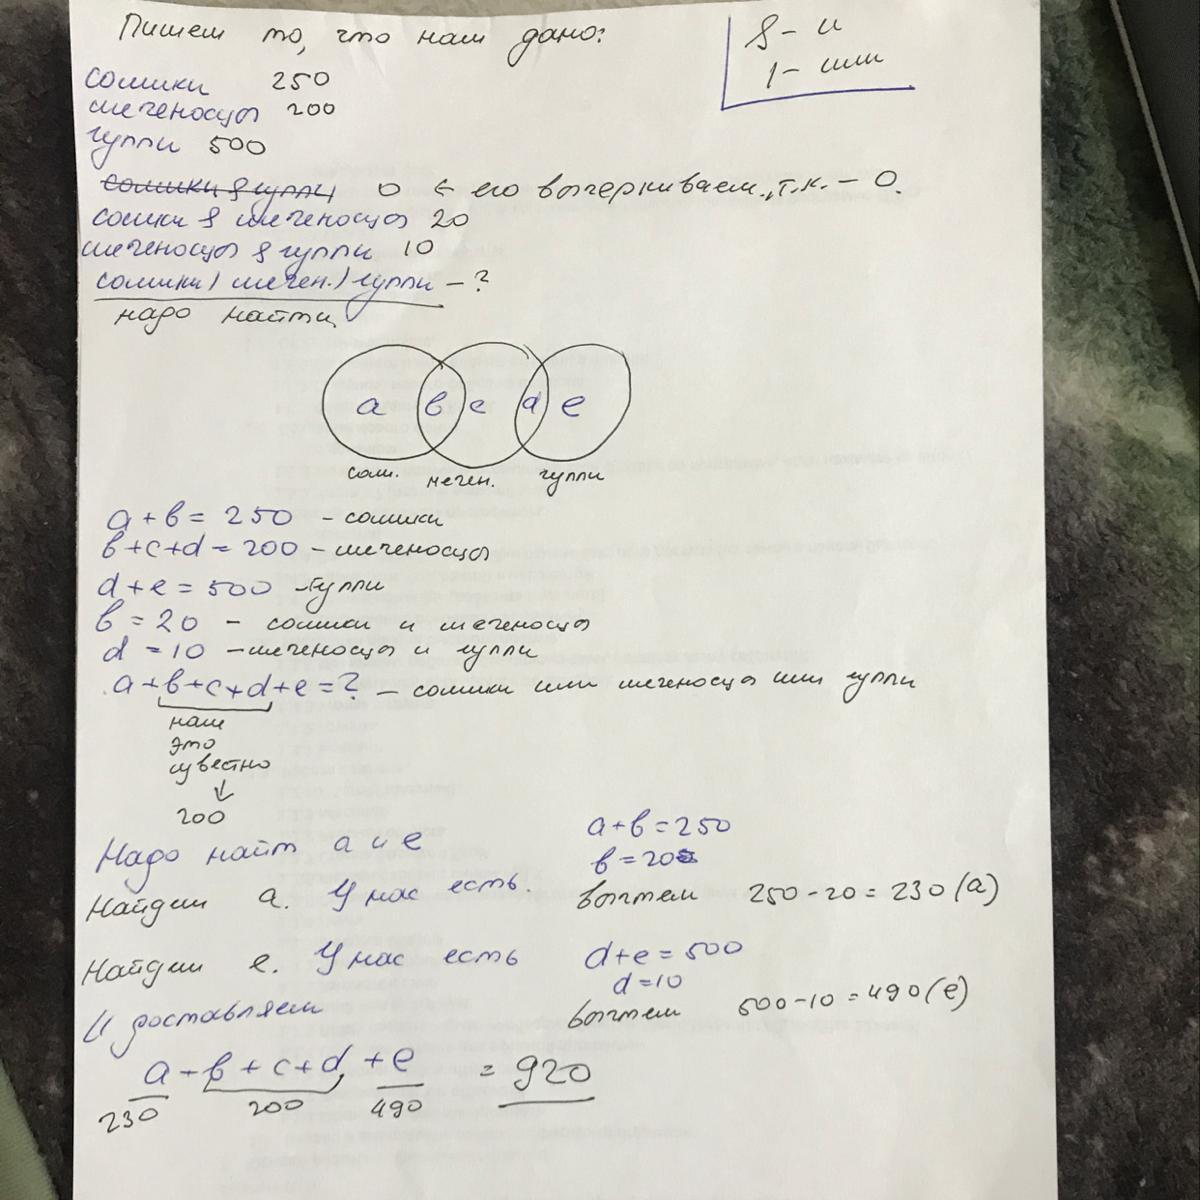 Пишем то, что нам дано:
& - и
| - или
сомики 250
меченосцы 200
гуппи 500
сомики & гуппи 0 ← его вычеркиваем, т.к. – 0.
сомики & меченосцы 20
меченосцы & гуппи 10
сомики | мечен. | гуппи – ?
надо найти
a в c d e
сом. мечен. гуппи
a + в = 250 – сомики
в + c + d = 200 – меченосцы
d + e = 500 – гуппи
в = 20 – сомики и меченосцы
d = 10 – меченосцы и гуппи
a + в + c + d + e = ? – сомики или меченосцы или гуппи
нам
это
известно
↓
200
Надо найт a и e
a + в = 250
в = 20
Найдем a. У нас есть.
вычтем 250 - 20 = 230 (a)
Найдем e. У нас есть
d + e = 500
d = 10
вычтем 500 - 10 = 490 (e)
И доставляем
a + в + c + d + e = 920
230 200 490